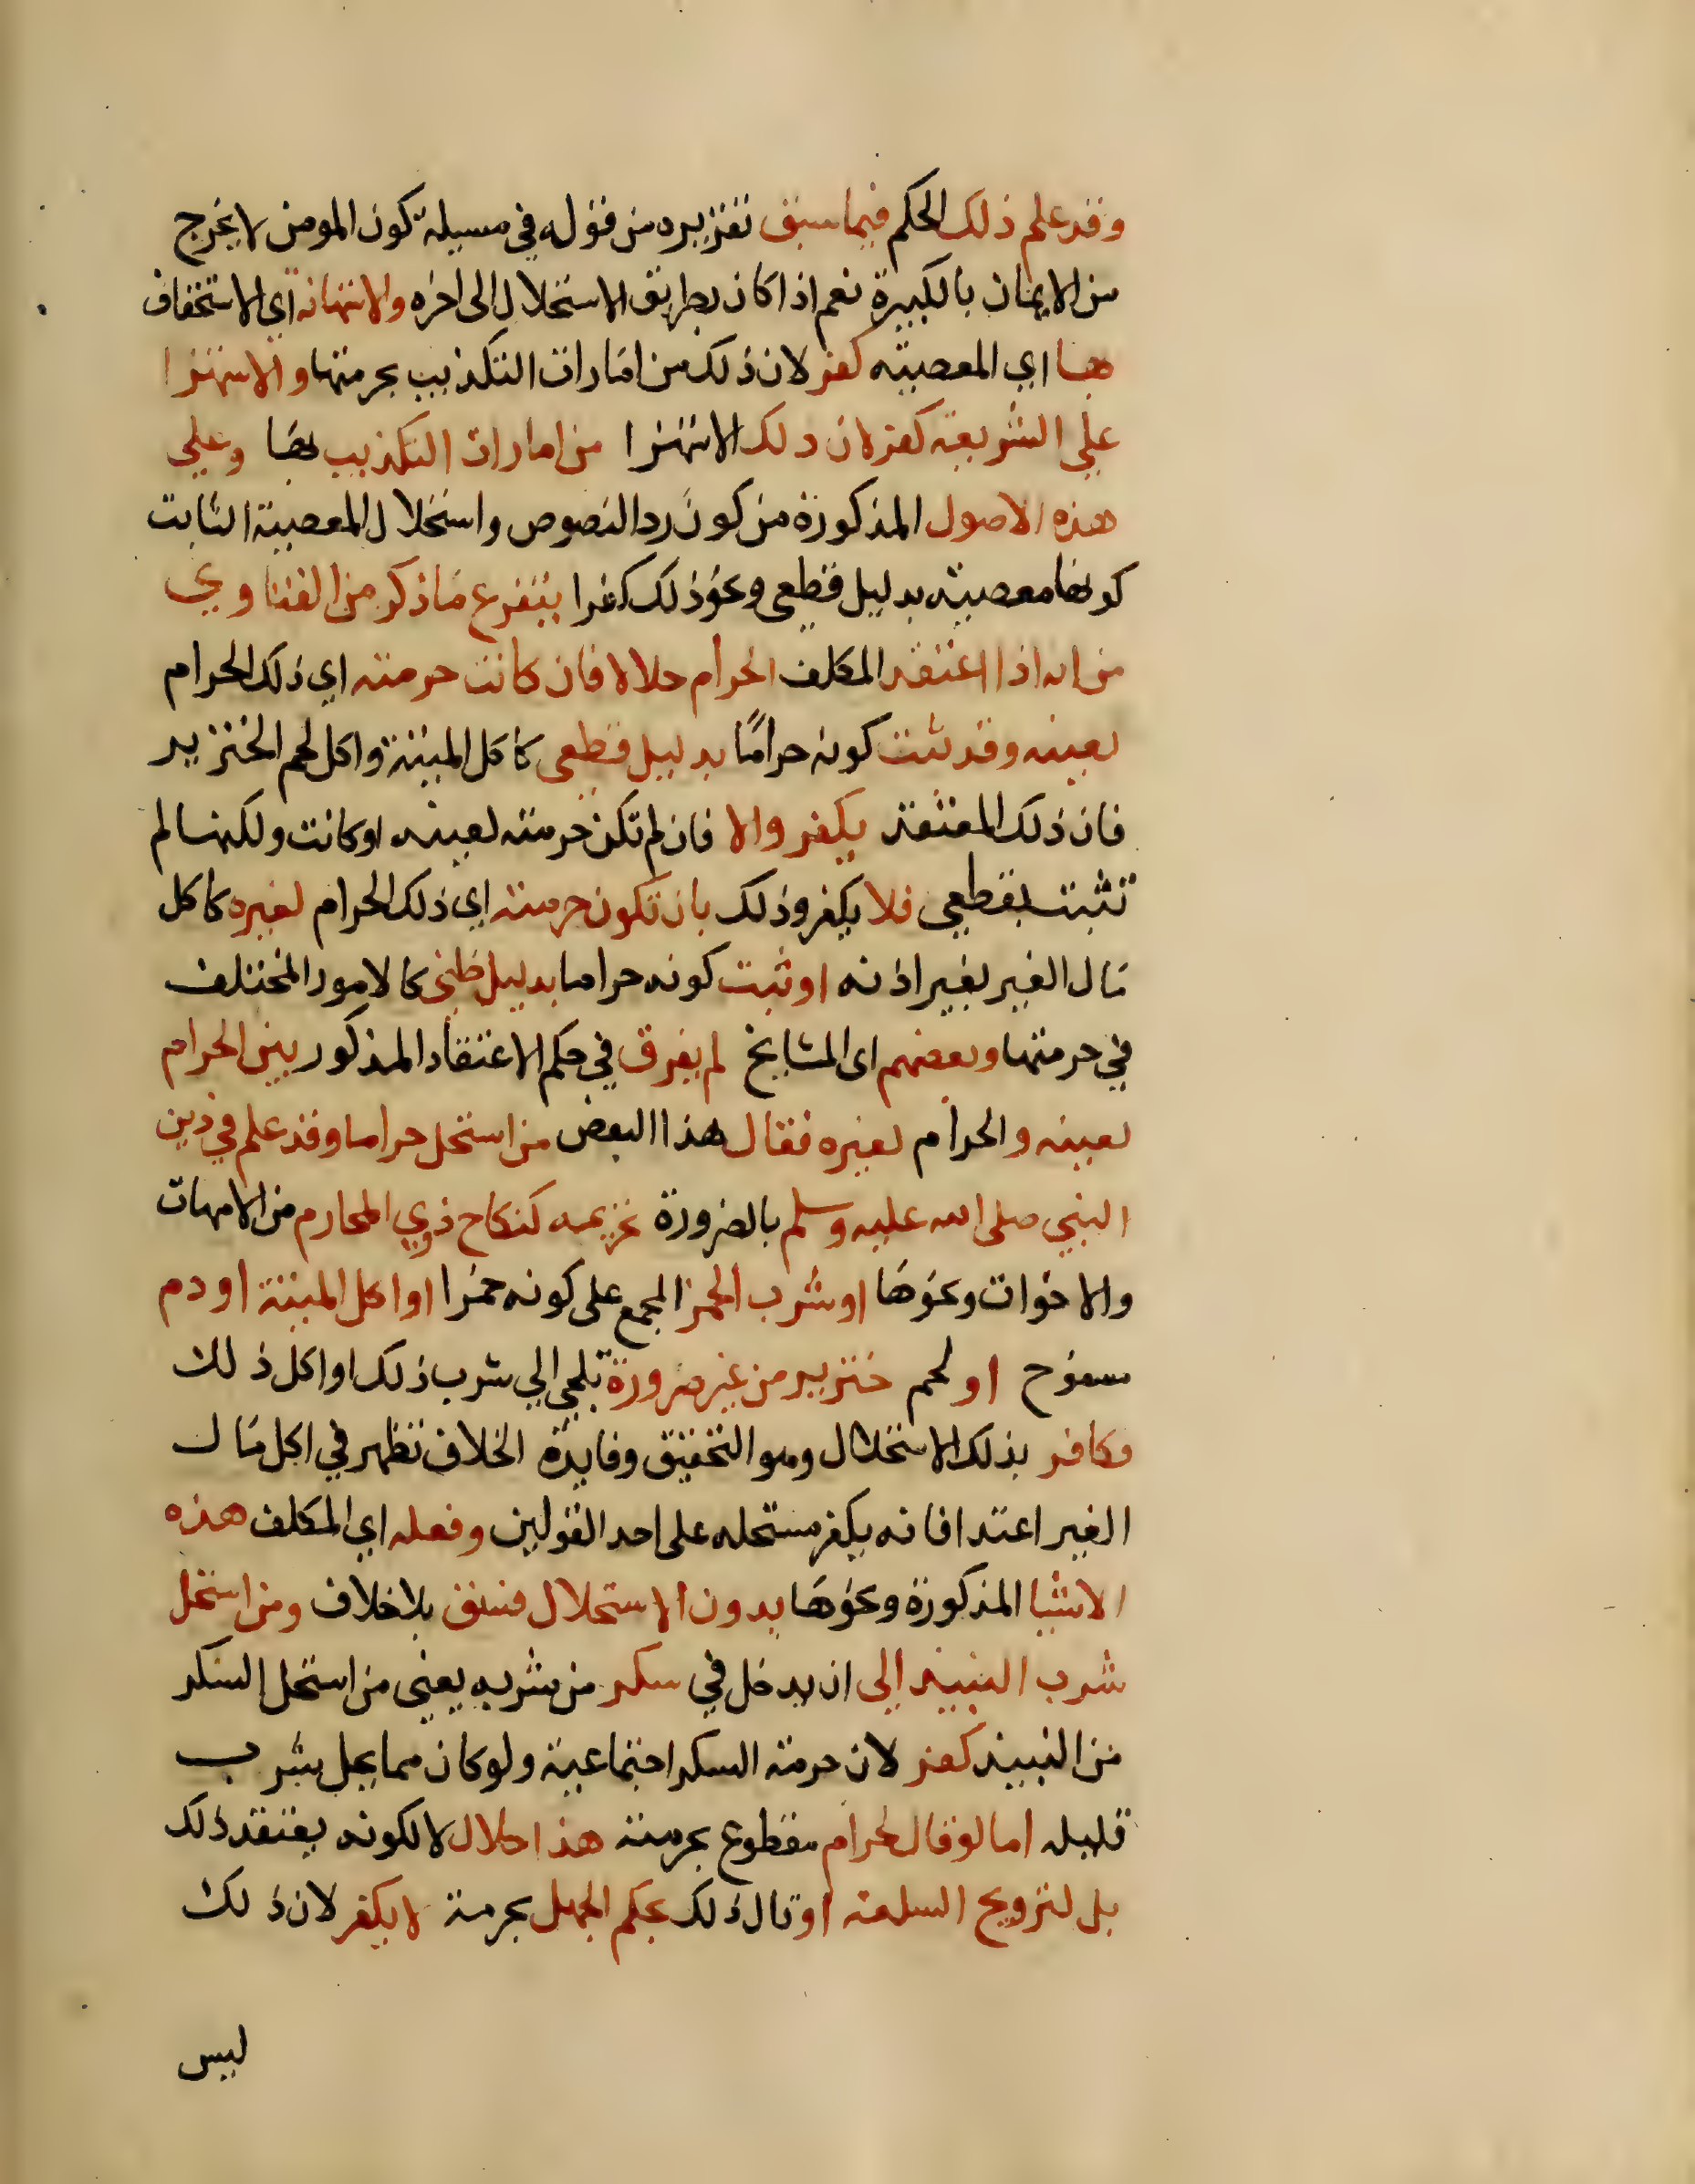 وقد علم ذلك الحكم فيما سبق تقريره من قوله في مسيلة كون المومن لا يخرج
من الايمان بالكبيرة نعم اذا كان بطريق الاستحلال الى اخره والاستهانة اي الاستخفاف
بها اي المعصية كفر لان ذلك من امارات التكذيب بحرمتها والاستهزا
علي الشريعة كفر لان ذلك الاستهزا من امارات التكذيب بها وعلي
هذه الاصول المذكورة من كون رد النصوص واستحلال المعصية الثابت
كونها معصية بدليل قطعي ونحو ذلك كفرا يتفرع ما ذكر من الفتاوي
من انه اذا اعتقد المكلف الحرام حلالا فان كانت حرمته اي ذلك الحرام
لعينه وقد ثبت كونه حرامًا بدليل قطعي كاكل الميتة واكل لحم الخنزير
فان ذلك المعتقد يكفر والا فان لم تكن حرمته لعينه او كانت ولكنها لم
تثبت بقطعي فلا يكفر وذلك بان تكون حرمته اي ذلك الحرام لغيره كاكل
مال الغير بغير اذنه او ثبت كونه حراما بدليل ظني كالامور المختلف
في حرمتها وبعضهم اى المشايخ لم يفرق في حكم الاعتقاد المذكور بين الحرام
لعينه والحرام لغيره فقال هذا البعض من استحل حراما وقد علم في دين
النبي صلى الله عليه وسلم بالضرورة تحريمه كنكاح ذوي المحارم من الامهات
والاخوات ونحوها او شرب الخمر المجمع على كونه خمرا او اكل الميتة او دم
مسفوح او لحم خنزير من غير ضرورة تلجي الي شرب ذلك او اكل ذلك
فكافر بذلك الاستحلال وهو التحقيق وفايدة الخلاف تظهر في اكل مال
الغير اعتدا فانه يكفر مستحله على احد القولين وفعله اي المكلف هذه
الاشيا المذكورة ونحوها بدون الاستحلال فسق بلا خلاف ومن استحل
شرب النبيذ إلى ان يدخل في سكر من شربه يعني من استحل السكر
من النبيذ كفر لان حرمة السكر اجتماعية ولو كان مما يحل شرب
قليله اما لو قال لحرام مقطوع بحرمته هذا حلال لا لكونه يعتقد ذلك
بل لترويج السلعة او قال ذلك بحكم الجهل بحرمة لا يكفر لان ذلك
ليس